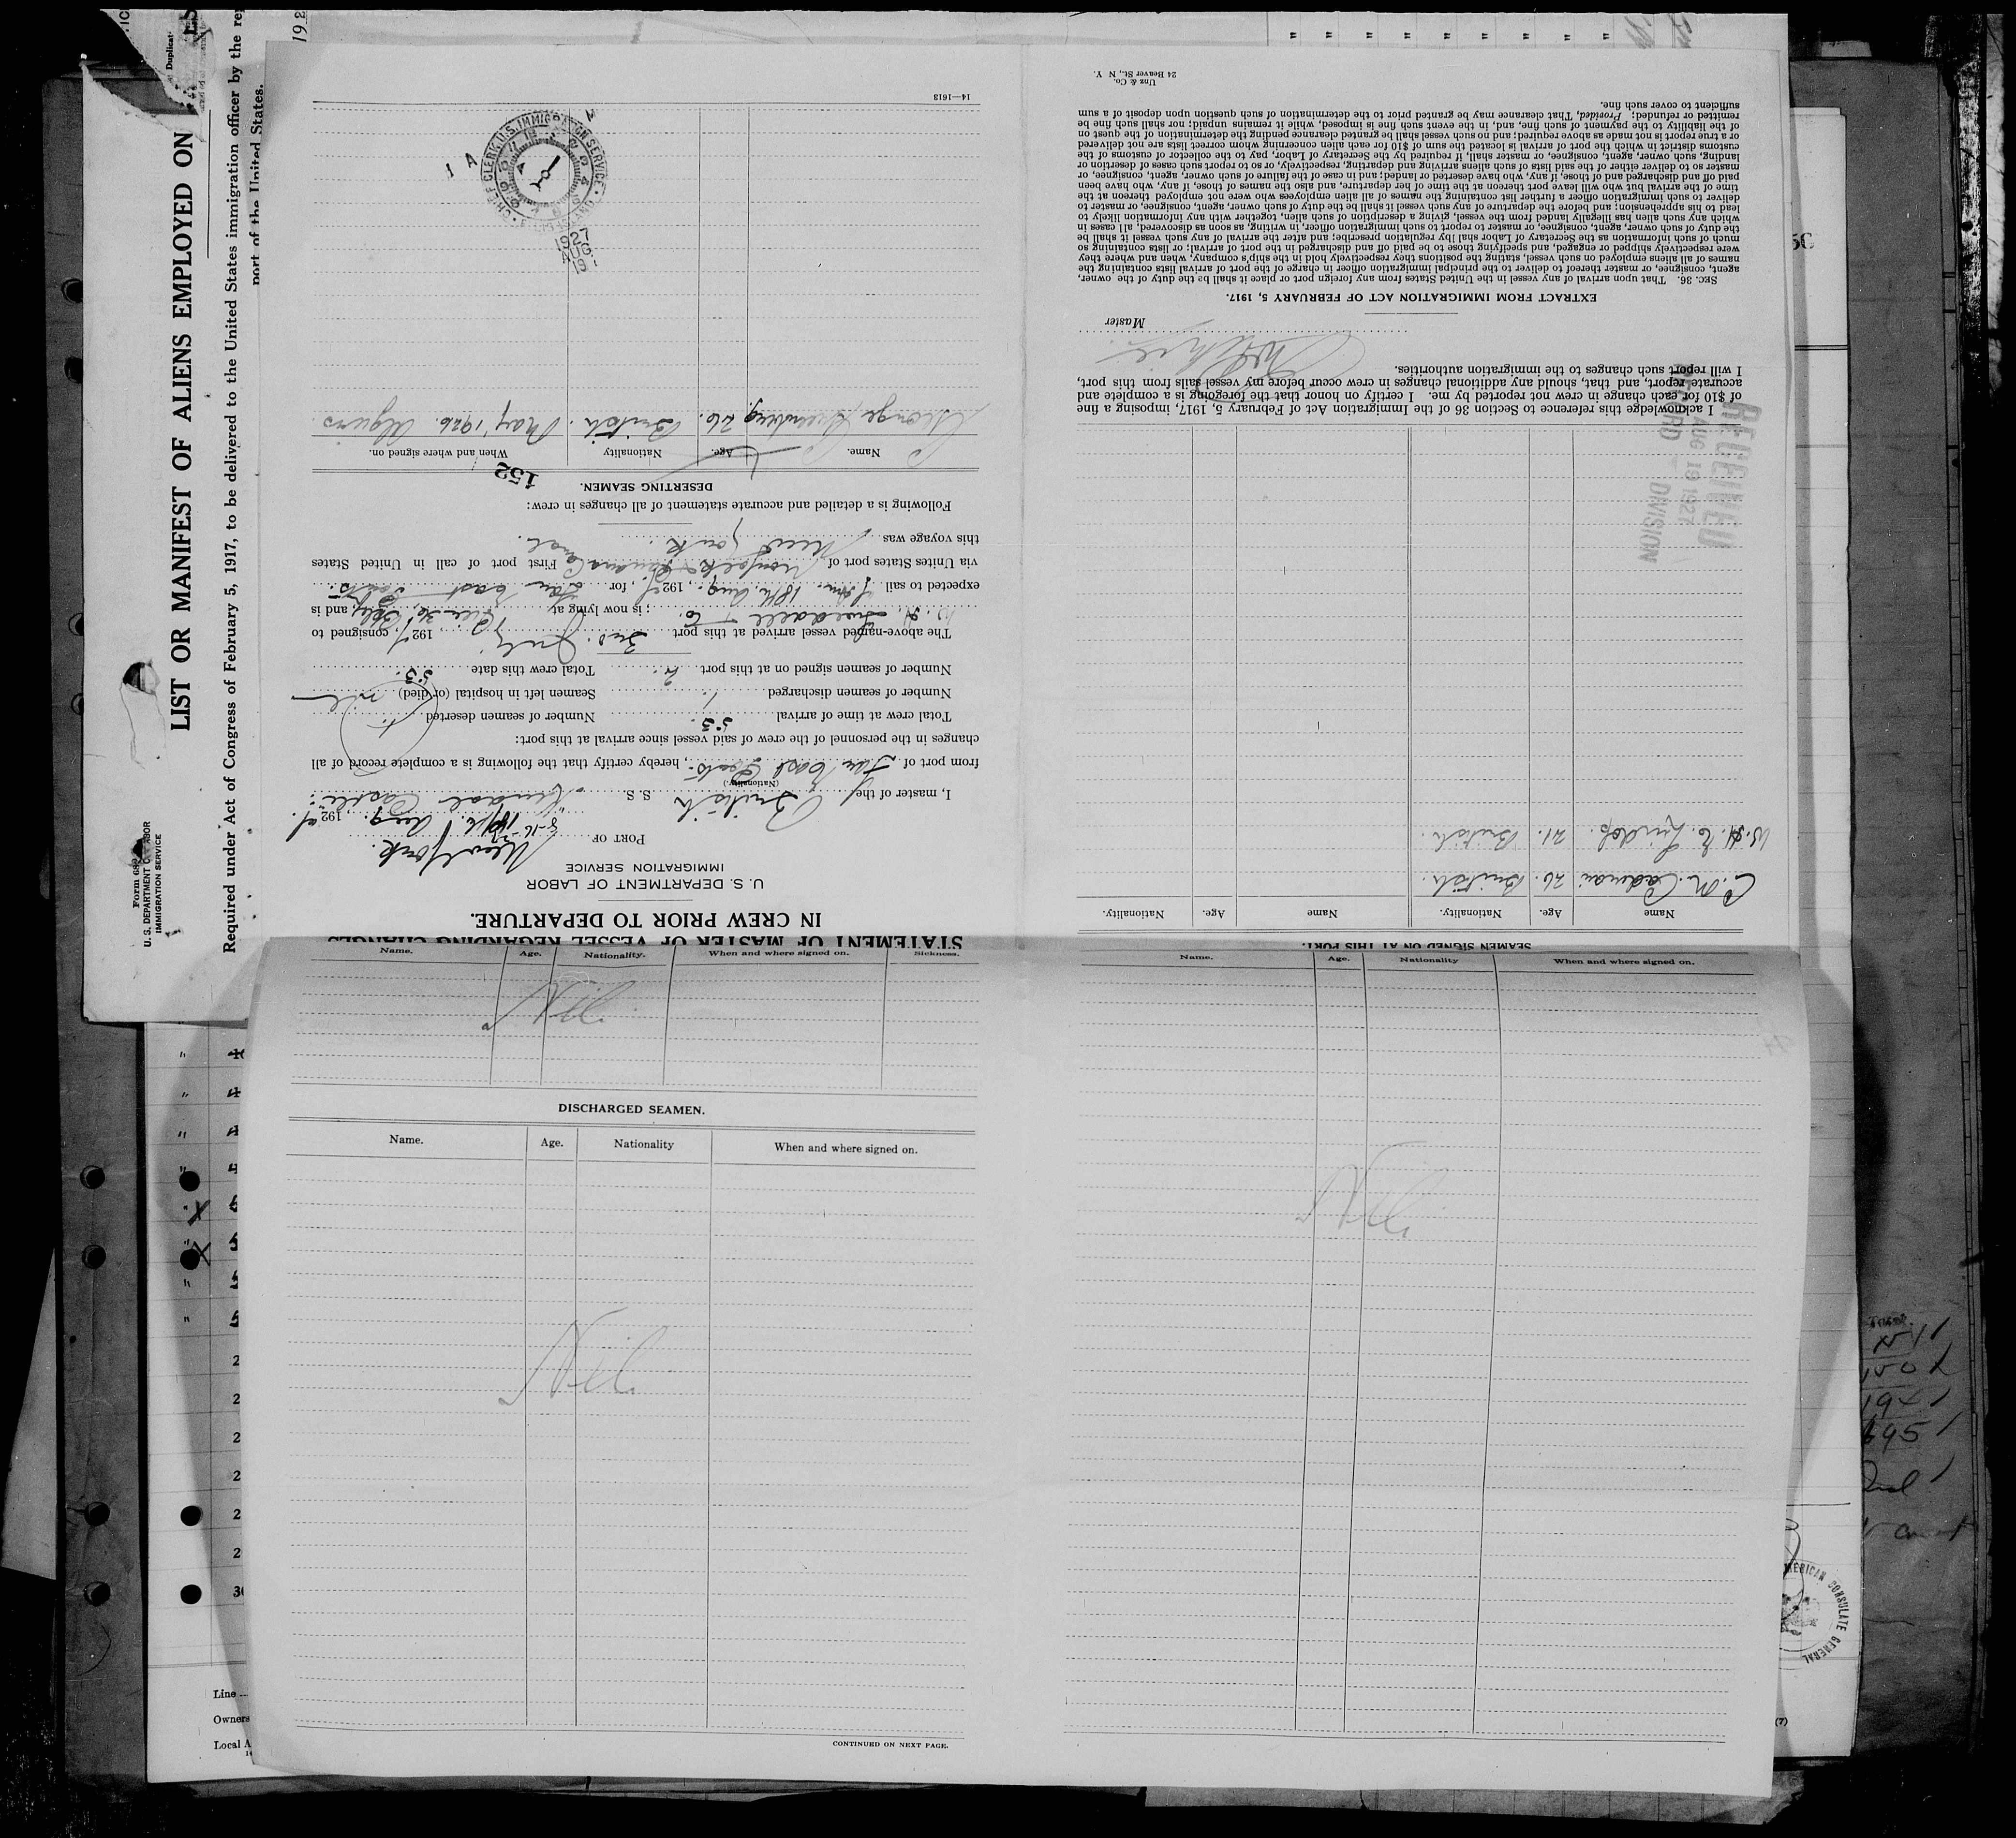 STATEMENT OF MASTER OF VESSEL REGARDING CHANGES
IN CREW PRIOR TO DEPARTURE.
U. S. DEPARTMENT OF LABOR
IMMIGRATION SERVICE
PORT OF New York.
18th Aug, 1927.
I, master of the British S. S. "Kendal Castle",
(Nationality.)
from port of Far East Ports, hereby certify that the following is a complete record of all
changes in the personnel of the crew of said vessel since arrival at this port:
Total crew at time of arrival 53. Number of seamen deserted 1.
Number of seamen discharged / Seamen left in hospital (or died) nil
Number of seamen signed on at this port 2. Total crew this date 53.
The above-named vessel arrived at this port July 1927, consigned to
W. H. & Co; is now lying at Bkly, and is
expected to sail 18th Aug, 1927, for Far East Ports.
via Unites States port of Norfolk & Panama Canal. First port of call in United States
this voyage was New York.
Following is a detailed and accurate statement of all changes in crew:
DESERTING SEAMEN.
152
Name. Age. Nationality When and where signed on.
George 26. British. May 1926. Algiers.
1927
AUG
19
14—1613
SEAMEN SIGNED ON AT THIS PORT.
Name Age. Nationality. Name Age. Nationality.
C. M. 26. British.
W. H. E. 21. British.
RECEIVED
AUG 19 1927
RECORD DIVISION
I acknowledge this reference to Section 36 of the Immigration Act of February 5, 1917, imposing a fine
of $10 for each change in crew not reported by me. I certify on honor that the foregoing is a complete and
accurate report, and that, should any additional changes in crew occur before my vessel sails from this port,
I will report such changes to the immigration authorities.
Master
EXTRACT FROM IMMIGRATION ACT OF FEBRUARY 5, 1917.
SEC. 36. That upon arrival of any vessel in the United States from any foreign port or place it shall be the duty of the owner,
agent, consignee, or master thereof to deliver to the principal immigration officer in charge of the port of arrival lists containing the
names of all aliens employed on such vessel, stating the positions they respectively hold in the ship's company, when and where they
were respectively shipped or engaged, and specifying those to be paid off and discharged in the port of arrival; or lists containing so
much of such information as the Secretary of Labor shall by regulation prescribe; and after the arrival of any such vessel it shall be
the duty of such owner, agent, consignee, or master to report to such immigration officer, in writing, as soon as discovered, all cases in
which any such alien has illegally landed from the vessel, giving a description of such alien, together with any information likely to
lead to his apprehension; and before the departure of any such vessel it shall be the duty of such owner, agent, consignee, or master to
deliver to such immigration officer a further list containing the names of all alien employees who were not employed thereon at the
time of the arrival but who will leave port thereon at the time of her departure, and also the names of those, if any, who have been
paid off and discharged and of those, if any, who have deserted or landed; and in case of the failure of such owner, agent, consignee, or
master so to deliver either of the said lists of such aliens arriving and departing, respectively, or so to report such cases of desertion or
landing, such owner, agent, consignee, or master shall, if required by the Secretary of Labor, pay to the collector of customs of the
customs district in which the port of arrival is located the sum of $10 for each alien concerning whom correct lists are not delivered
or a true report is not made as above required; and no such vessel shall be granted clearance pending the determination of the question
of the liability to the payment of such fine, and, in the event such fine is imposed, while it remains unpaid; nor shall such fine be
remitted or refunded; Provided, That clearance may be granted prior to the determination of such question upon deposit of a sum
sufficient to cover such fine.
Unz & Co.
24 Beaver St., N. Y.
Name. Age. Nationality. When and where signed on. Sickness.
Nil.
DISCHARGED SEAMEN.
Name. Age. Nationality When and where signed on.
Nil.
CONTINUED ON NEXT PAGE.
Name. Age. Nationality When and where signed on.
Nil.
LIST OR MANIFEST OF ALIENS EMPLOYED ON
Required under Act of Congress of February 5, 1917, to be delivered to the United States immigration officer by the
port of the United States.
U. S. DEPARTMENT OF LABOR
IMMIGRATION SERVICE
Line
Owners
Local A
AMERICAN CONSULATE GENERAL